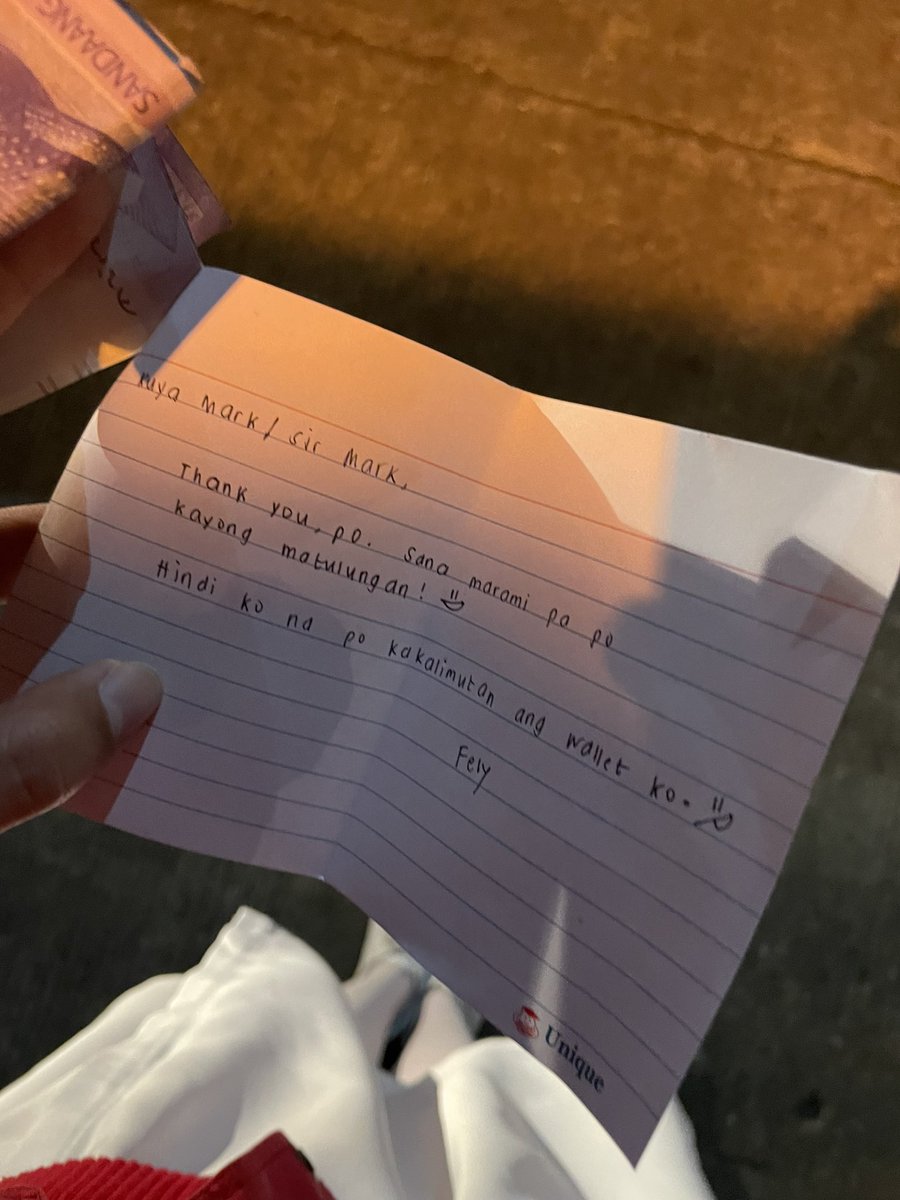 SANDAANG
Kuya Mark/ Sir Mark,
Thank you, po. Sana marami pa po
kayong matulungan!
Hindi ko na po kakalimutan ang wallet ko.
Fely
Unique